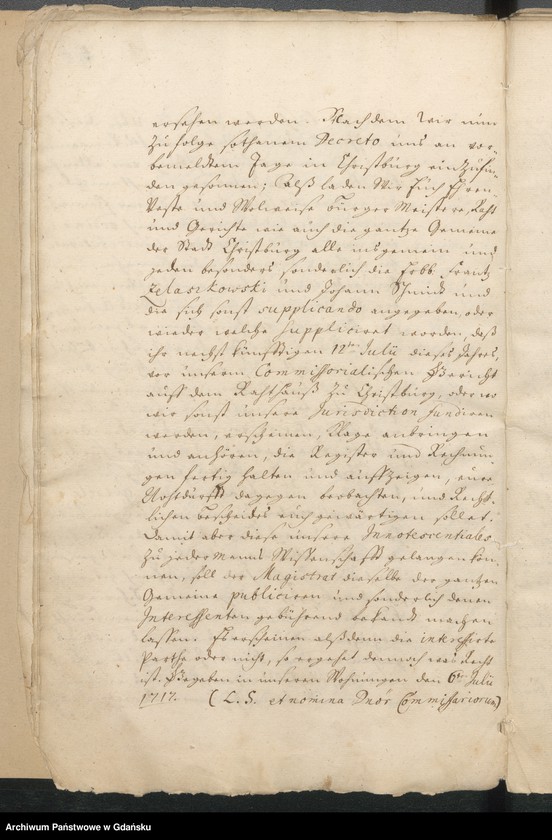 ersehen werden. Nachdem wir nun
zu folge sothanem Decreto uns an vor-
bemeldtem Tage in Christburg einzufin-
den gesonnen; Alß laden Wir Euch Ehren
Veste und Wolweise Bürger Meistere, Raht
und Gerichte wie auch die gantze Gemeine
der Stadt Christburg alle insgemein und
jeden besonders sonderlich die Erbb. Frantz
Zelaszkowski und Johann Schmidt und
die sich sonst supplicando angegeben, oder
wieder welche suppliciret worden, daß
ihr nechst künfftigen 12ten Julii dieses Jahres,
vor unserm Commissorialischen Gericht
auff dem Rahthauß zu Christburg, oder wo
wir sonst unsere Jurisdiction fundiren
werden, erscheinen, Klage anbringen
und anhören, die Register und Rechnun-
gen fertig halten und auffzeigen, eure
Nohtdurfft dagegen beobachten, und Recht-
lichen bescheides euch gewärtigen sollet.
Damit aber diese unsere Innotescentiales
zu jedermans Wissenschafft gelangen kön-
nen, soll der Magistrat dieselbe der gantzen
Gemeine publiciren und sonderlich denen
Interessenten gebührend bekandt machen
lassen. Es erscheinen alßdenn die interessirte
Parthe oder nicht, so ergehet dennoch was Recht
ist. Gegeben in unseren Wohnungen den 6ten Julii
1717. (L. S. et nomina Dnor. Commissariorum)
Archiwum Państwowe w Gdańsku